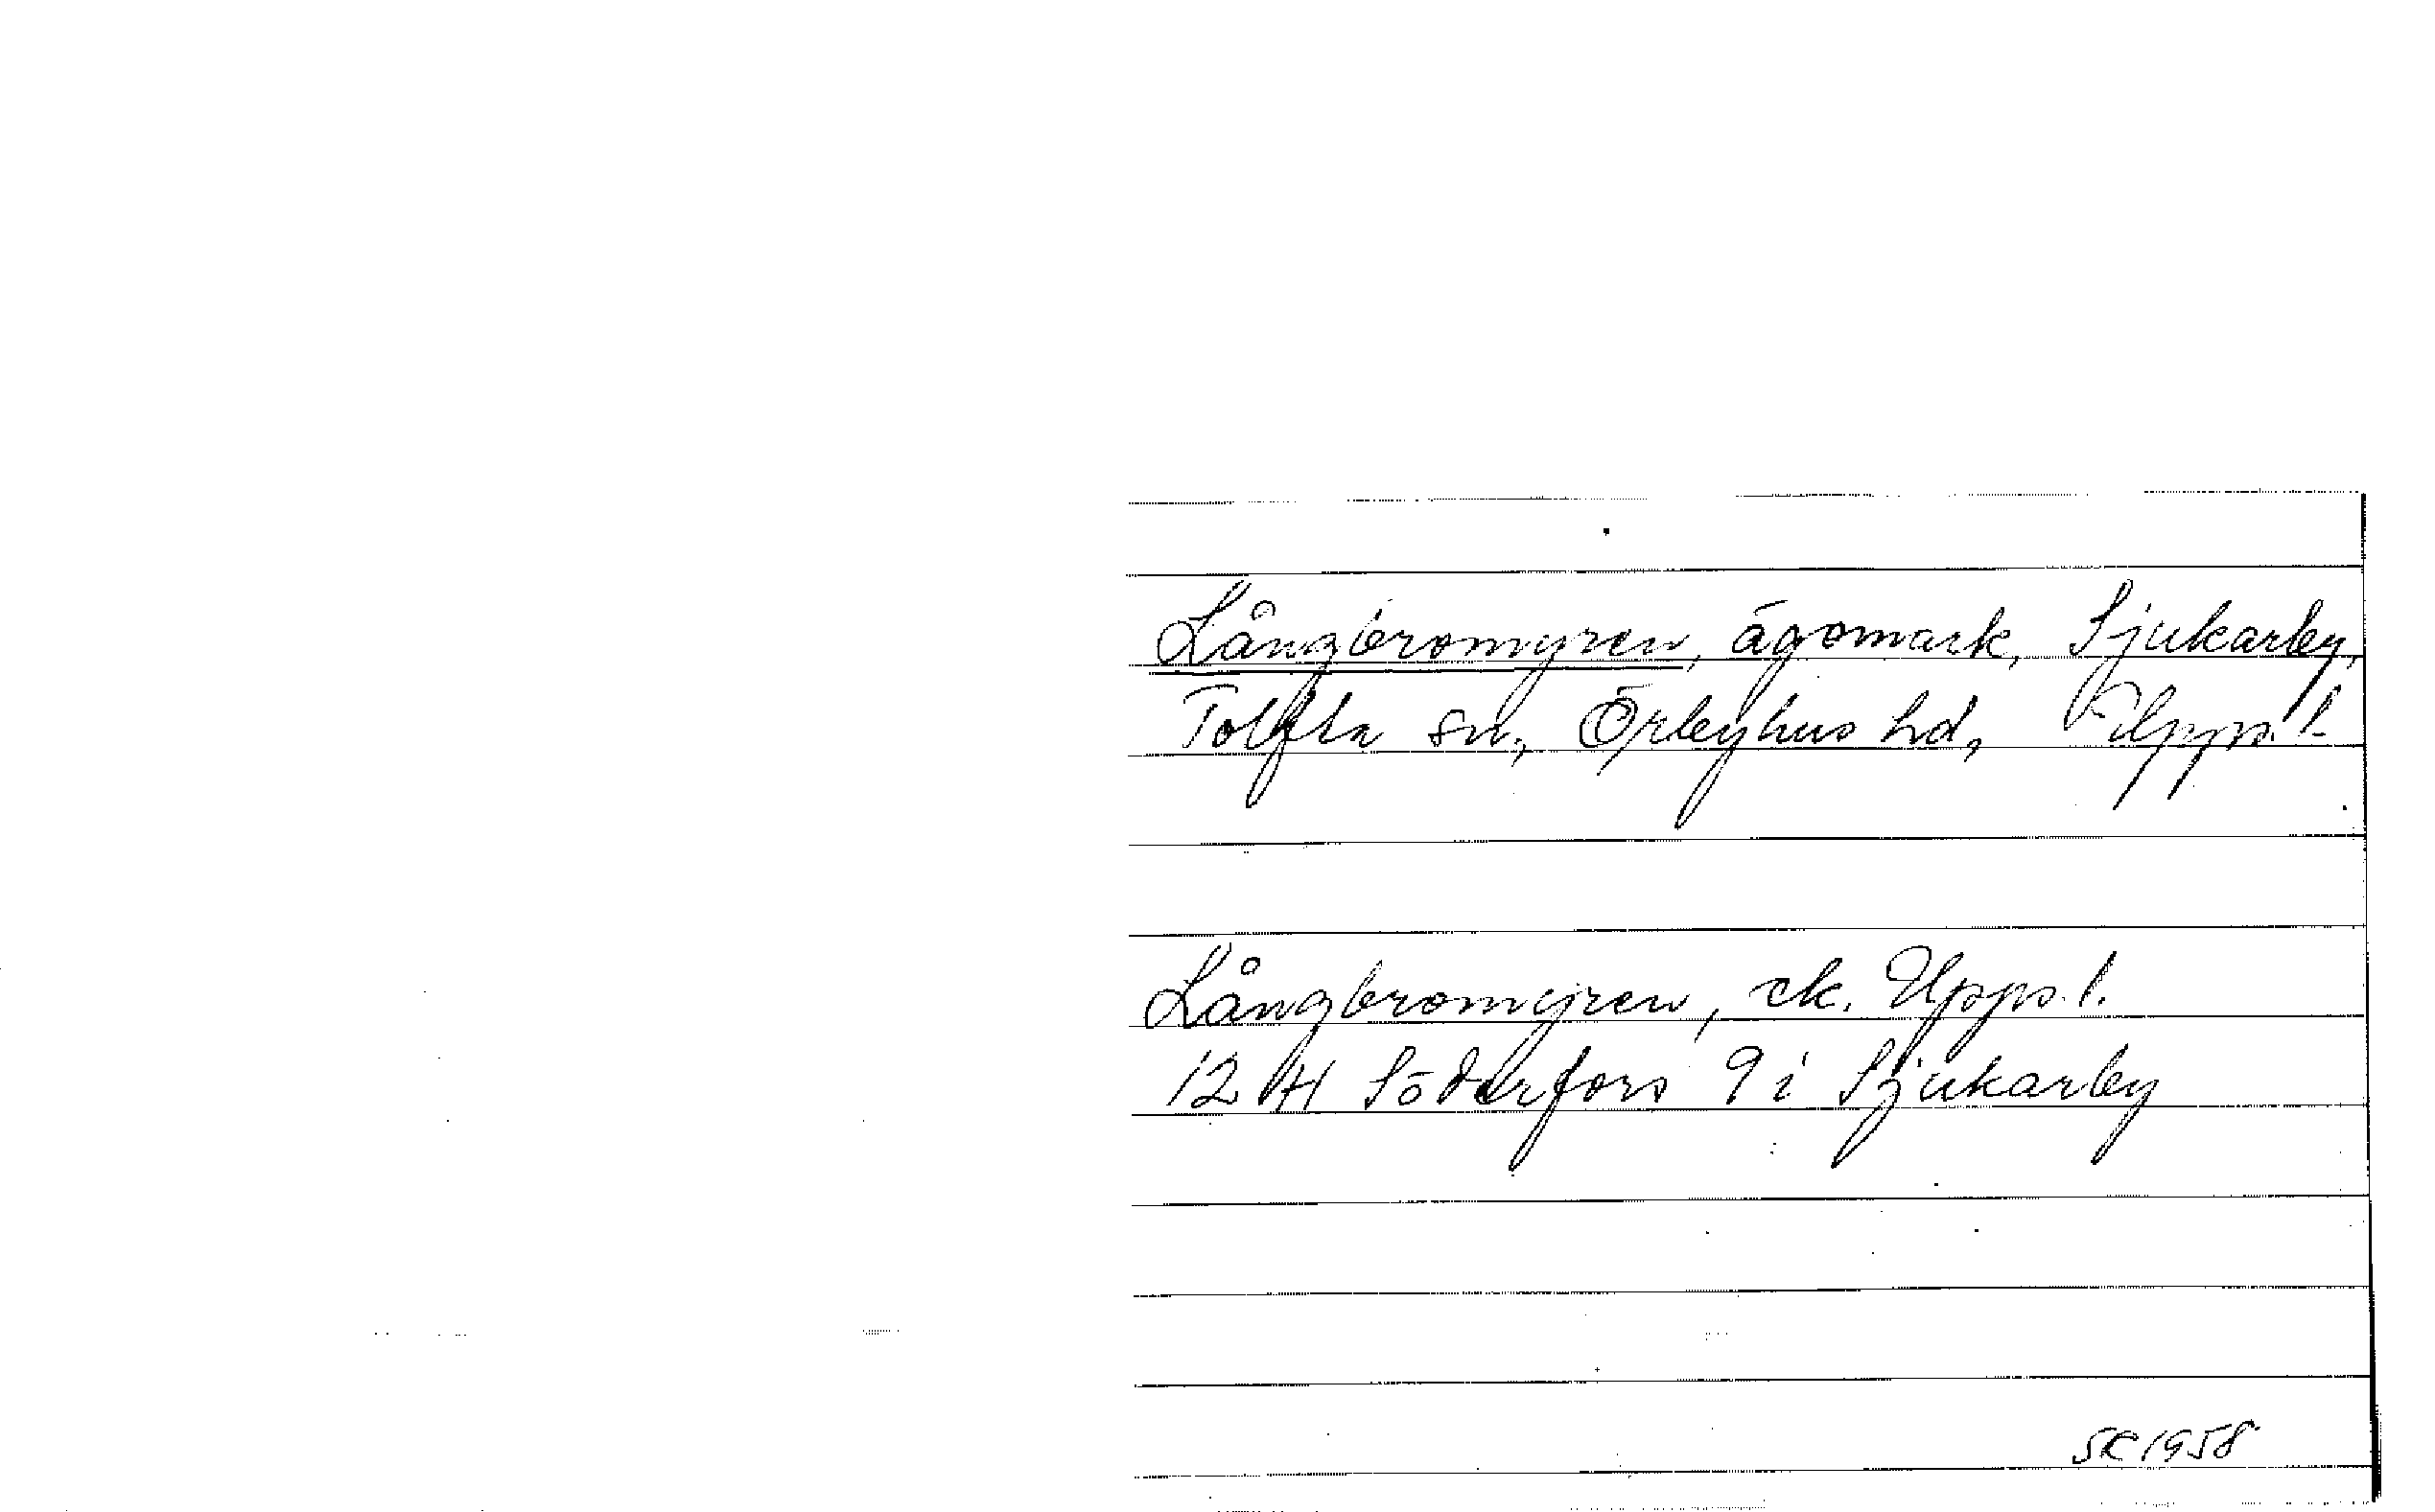 Långbromyren, ägomark, Sjukarby,
Tolfta sn, Örbyhus hd, Upps. l.
Långbromyren, ek. Upps. l.
12 H Söderfors 9 i Sjukarby
SK 1958